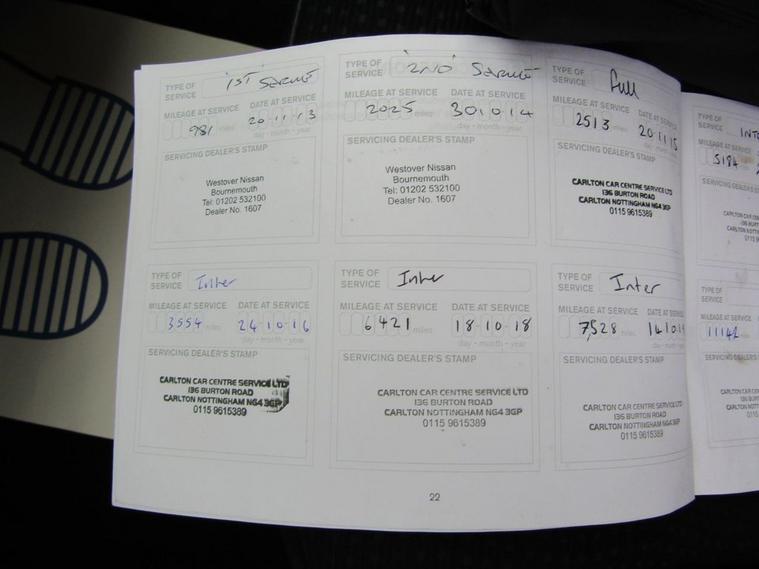 TYPE OF SERVICE '1ST' SERVICE
MILEAGE AT SERVICE DATE AT SERVICE
981 miles 20 11 13
SERVICING DEALER'S STAMP
Westover Nissan
Bournemouth
Tel: 01202 532100
Dealer No. 1607
TYPE OF SERVICE '2ND' SERVICE
MILEAGE AT SERVICE DATE AT SERVICE
2025 30 10 14
day - month - year
SERVICING DEALER'S STAMP
Westover Nissan
Bournemouth
Tel: 01202 532100
Dealer No. 1607
TYPE OF SERVICE full
MILEAGE AT SERVICE DATE AT SERVICE
2513 miles 20 11 15
day - month
SERVICING DEALER'S STAMP
CARLTON CAR CENTRE SERVICE LTD
136 BURTON ROAD
CARLTON NOTTINGHAM NG4 3GP
0115 9615389
TYPE OF SERVICE Inter
MILEAGE AT SERVICE DATE AT SERVICE
3554 miles 24 10 16
day - month - year
SERVICING DEALER'S STAMP
CARLTON CAR CENTRE SERVICE LTD
136 BURTON ROAD
CARLTON NOTTINGHAM NG4 3GP
0115 9615389
TYPE OF SERVICE Inter
MILEAGE AT SERVICE DATE AT SERVICE
6421 miles 18 10 18
day - month - year
SERVICING DEALER'S STAMP
CARLTON CAR CENTRE SERVICE LTD
136 BURTON ROAD
CARLTON NOTTINGHAM NG4 3GP
0115 9615389
TYPE OF SERVICE Inter
MILEAGE AT SERVICE DATE AT
7,528 miles 14 10
day - mont
SERVICING DEALER'S STAMP
CARLTON CAR CENTRE SERVICE LTD
136 BURTON ROAD
CARLTON NOTTINGHAM NG4 3GP
0115 9615389
22
TYPE OF SERVICE INT
MILEAGE AT SERVICE
5184 miles
SERVICING DEALER'S
CARLTON CAR CE
136 BU
CARLTON NOTT
0115
TYPE OF SERVICE
MILEAGE AT SERVICE
11142
SERVICING DEALER'S
CARLTON CAR
136 B
CARLTON NOT
011